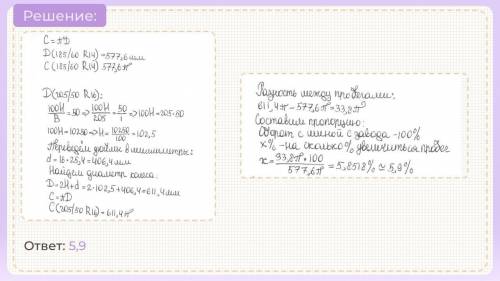 Решение:
C=πD
D(185/60 R14)=577,6 мм
C(185/60 R14) 577,6π
D(205/50 R16):
100H/B=50 ⇒ 100H/205=50/1 ⇒ 100H=205·50
100H=10250 ⇒ H=10250/100=102,5
Переведём дюймы в миллиметры:
d=16·25,4=406,4 мм
Найдём диаметр колеса:
D=2H+d=2·102,5+406,4=611,4 мм
C=πD
C(205/50 R16)=611,4π
Разность между пробегами:
611,4π-577,6π=33,8π
Составим пропорцию:
Оборот с шиной с завода -100%
x% -на сколько% увеличиться пробег
x=33,8π·100/577,6π=5,8518%≈5,9%
Ответ: 5,9